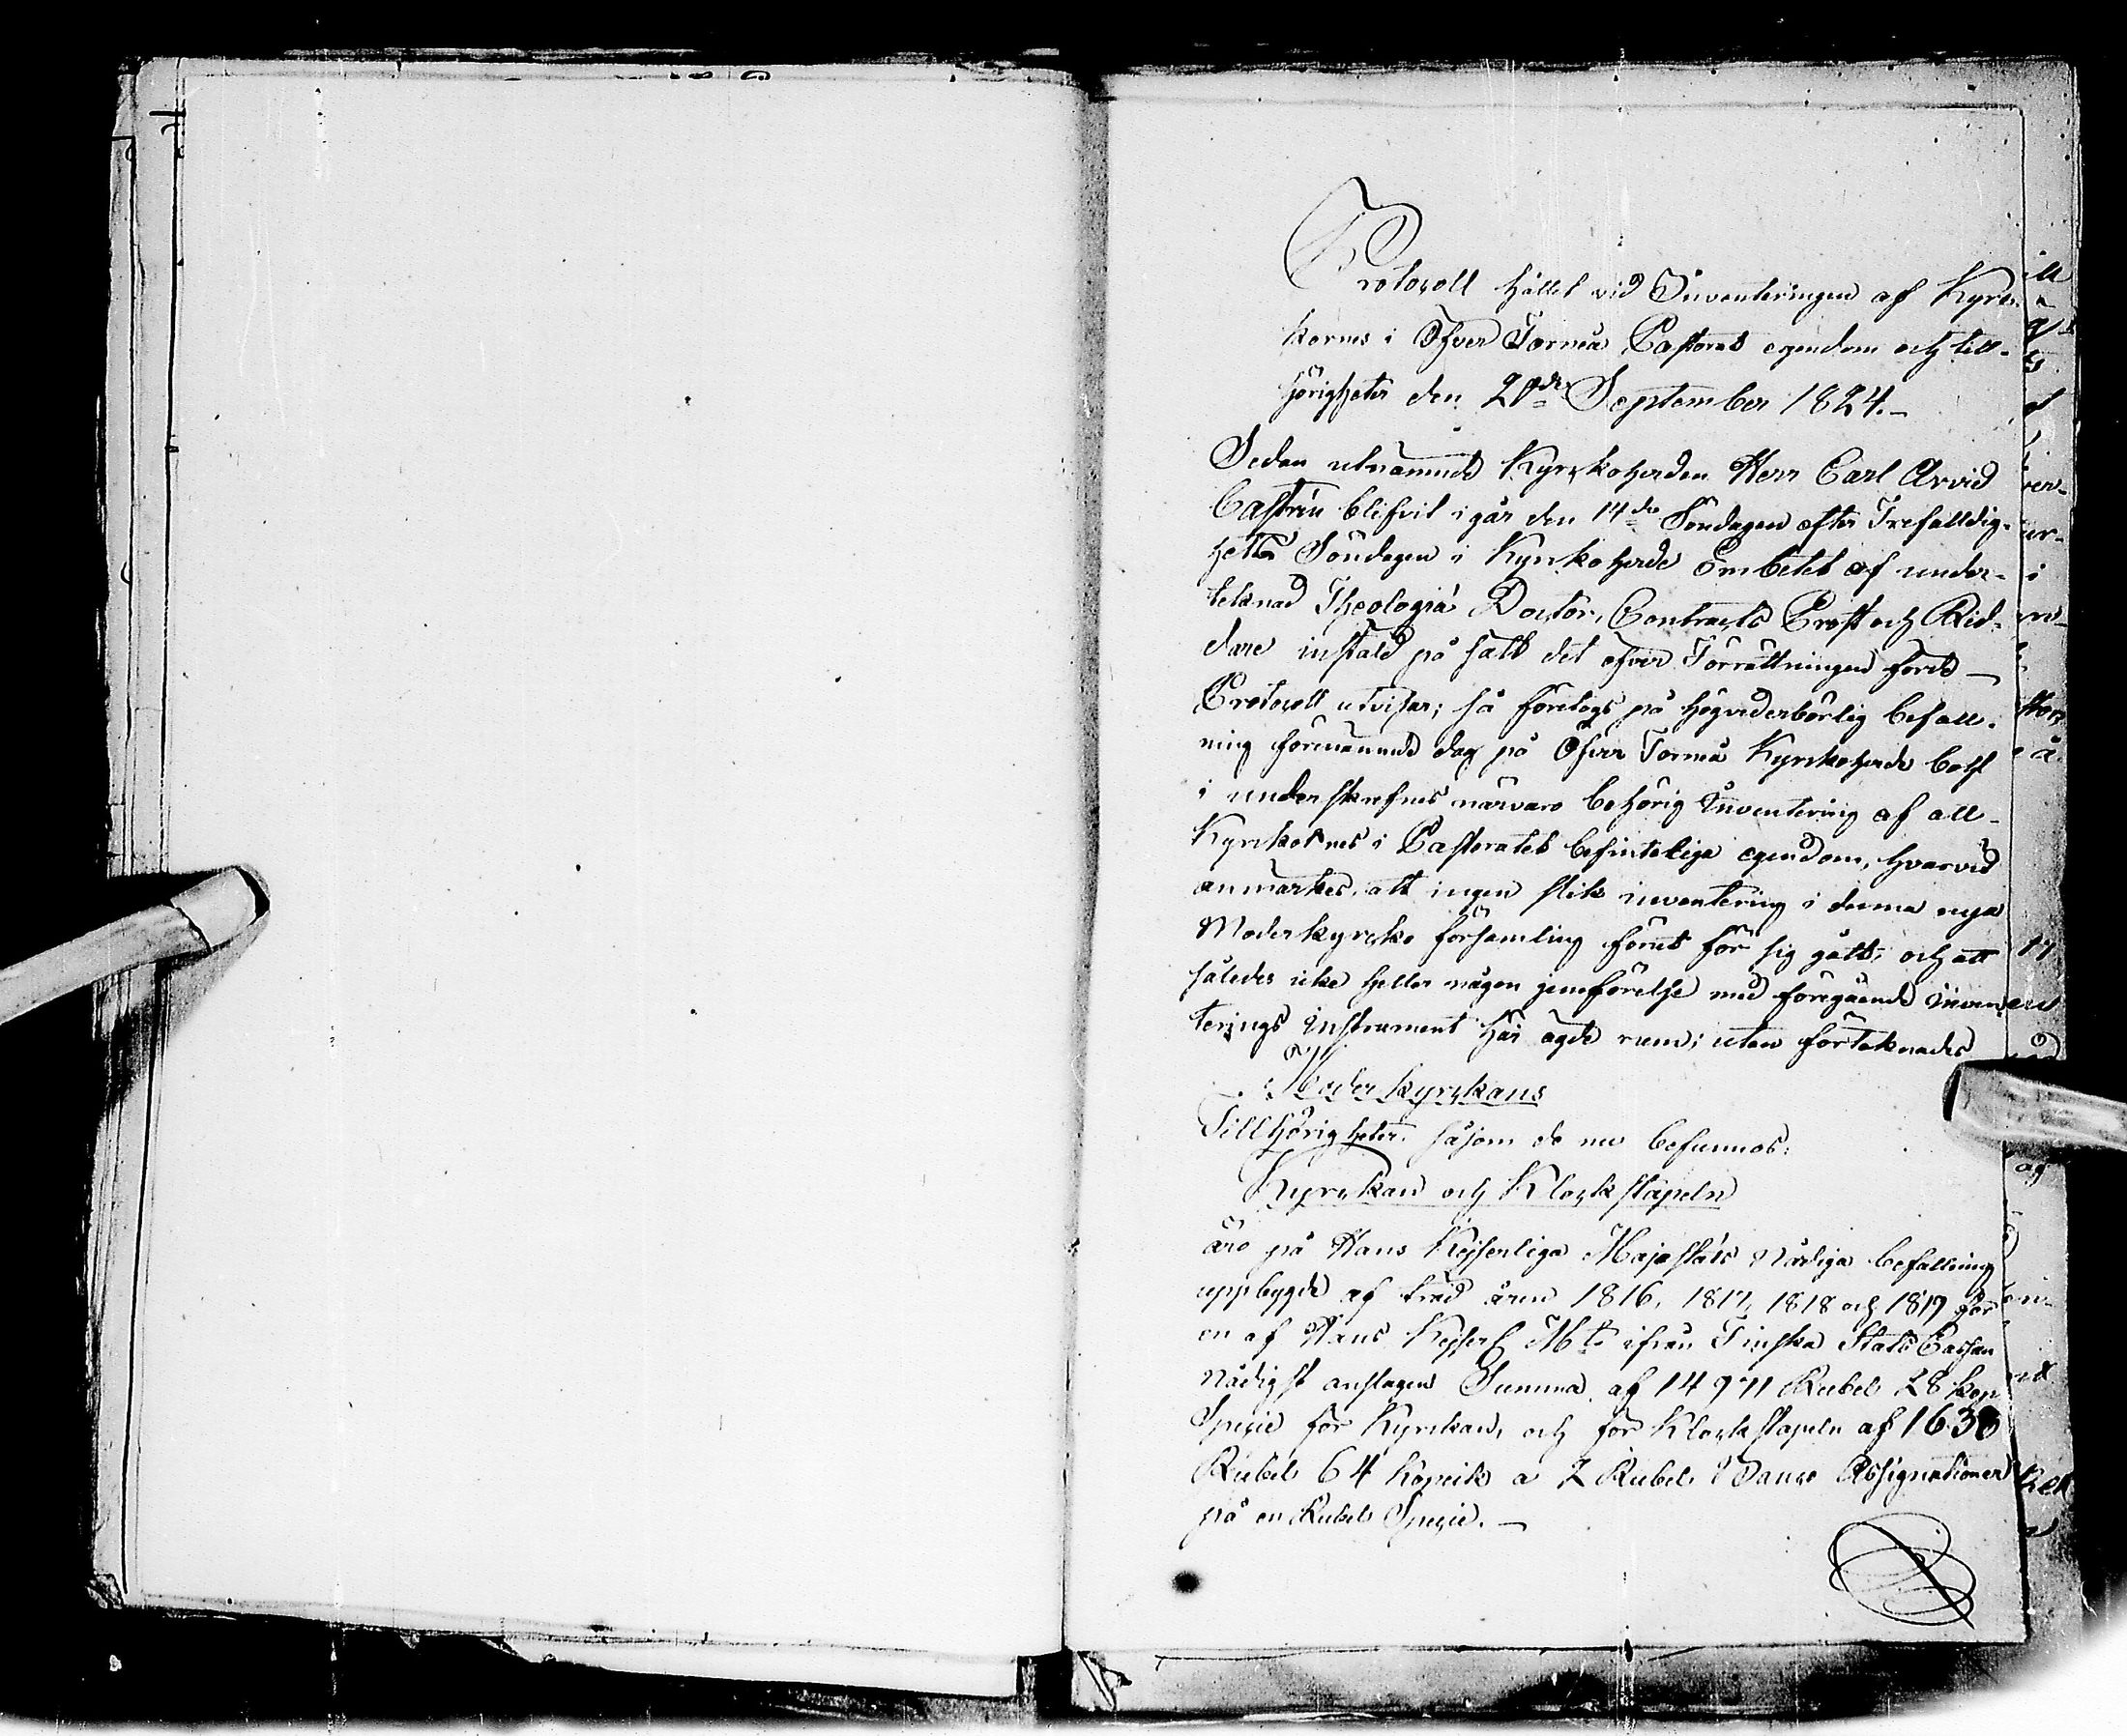 Protocoll hållet vid Inventeringen af Kyrc-
kornes i Öfver Torneå Pastorat egendom och till-
hörigheter den 20de September 1824.-
Sedan utnämnde Kyrckoherden Herr Carl Arvid
Castrén blifvit i går den 14de Söndagen efter Trefalldig-
hets Söndagen i Kyrckoherde Embetet af under-
teknad Theologiæ Doctor, Contracts Prost och Rid-
dare instald på sätt det öfver Förrättningen förde
Protocoll utvisar; så företogs på högvederbörlig befall-
ning förenämnde dag på Öfver Torneå Kyrckoherde bohl
i underskrefnes närvaro behörig Inventering af all
Kyrckornes i Pastoratet befinteliga egendom, hvarvid
anmärkes, att ingen slik inventering i denna nya
Moderkyrcko församling förut för sig gått, och att
således icke heller någon jemförelse med föregående Inven-
terings Instrument här ägde rum; utan förteknades
Moderkyrckans
Tillhörigheter. såsom de nu befunnos.
Kyrckan och Klockstapeln
äro på Hans Kejserliga Majestäts Nådiga befallning
uppbygde af träd åren 1816, 1817, 1818 och 1819 för
en af Hans Kejserl Mt. ifrån Finska Stats Cassan
Nådigst anslagen Summa af 14 971 Rubel 28 kop
Specie för Kyrckan, och för Klockstapeln af 1638
Rubel 64 kopeik a 2 Rubel Banco Assignationer
på en Rubel Specie.-